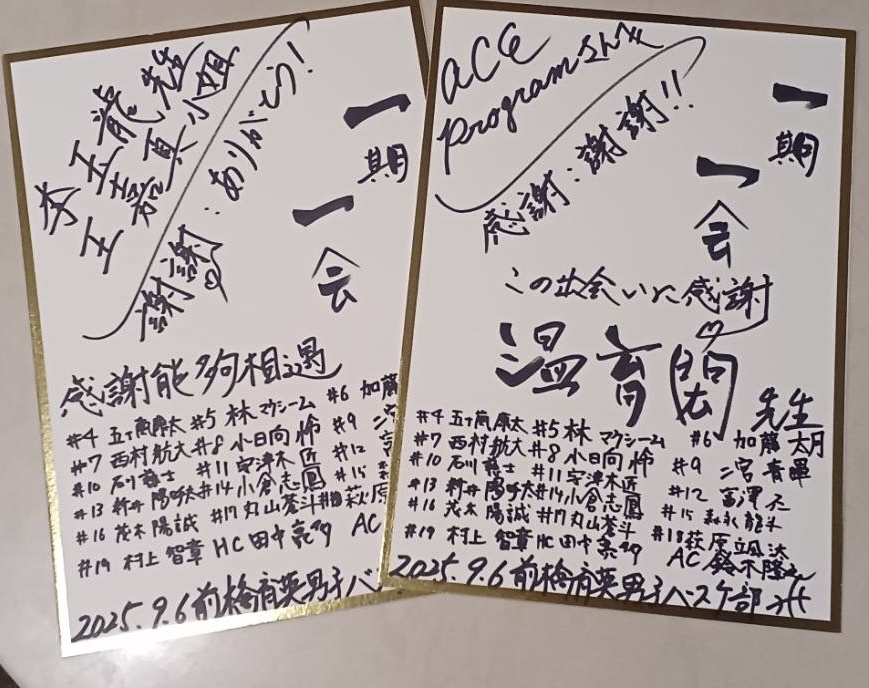 李玉龍先生
王嘉真小姐
謝謝:ありがとう!
一期
一会
感謝能夠相遇
#4 五十嵐康太 #5 林マクシーム #6 加藤
#7 西村航大 #8 小日向 怜 #9 二宮
#10 石川 #11 宇津木匠 #12 富
#13 新井 陽呼太 #14 小倉志鳳 #15 森
#16 茂木陽誠 #17 丸山蒼斗 #18 萩原
#19 村上智章 HC 田中 AC
2025.9.6 前橋育英男子バス
ACE
Programさんへ
感謝:謝謝!!
一期
一会
この出会いに感謝
温育闳
先生
#4 五十嵐康太 #5 林マクシーム #6 加藤太月
#7 西村航大 #8 小日向 怜 #9 二宮青暉
#10 石川 #11 宇津木匠 #12 富澤
#13 新井 陽呼太 #14 小倉志鳳 #15 森永龍斗
#16 茂木陽誠 #17 丸山蒼斗 #18 萩原颯汰
#19 村上智章 HC 田中 AC 鈴木隆之
2025.9.6 前橋育英男子バスケ部